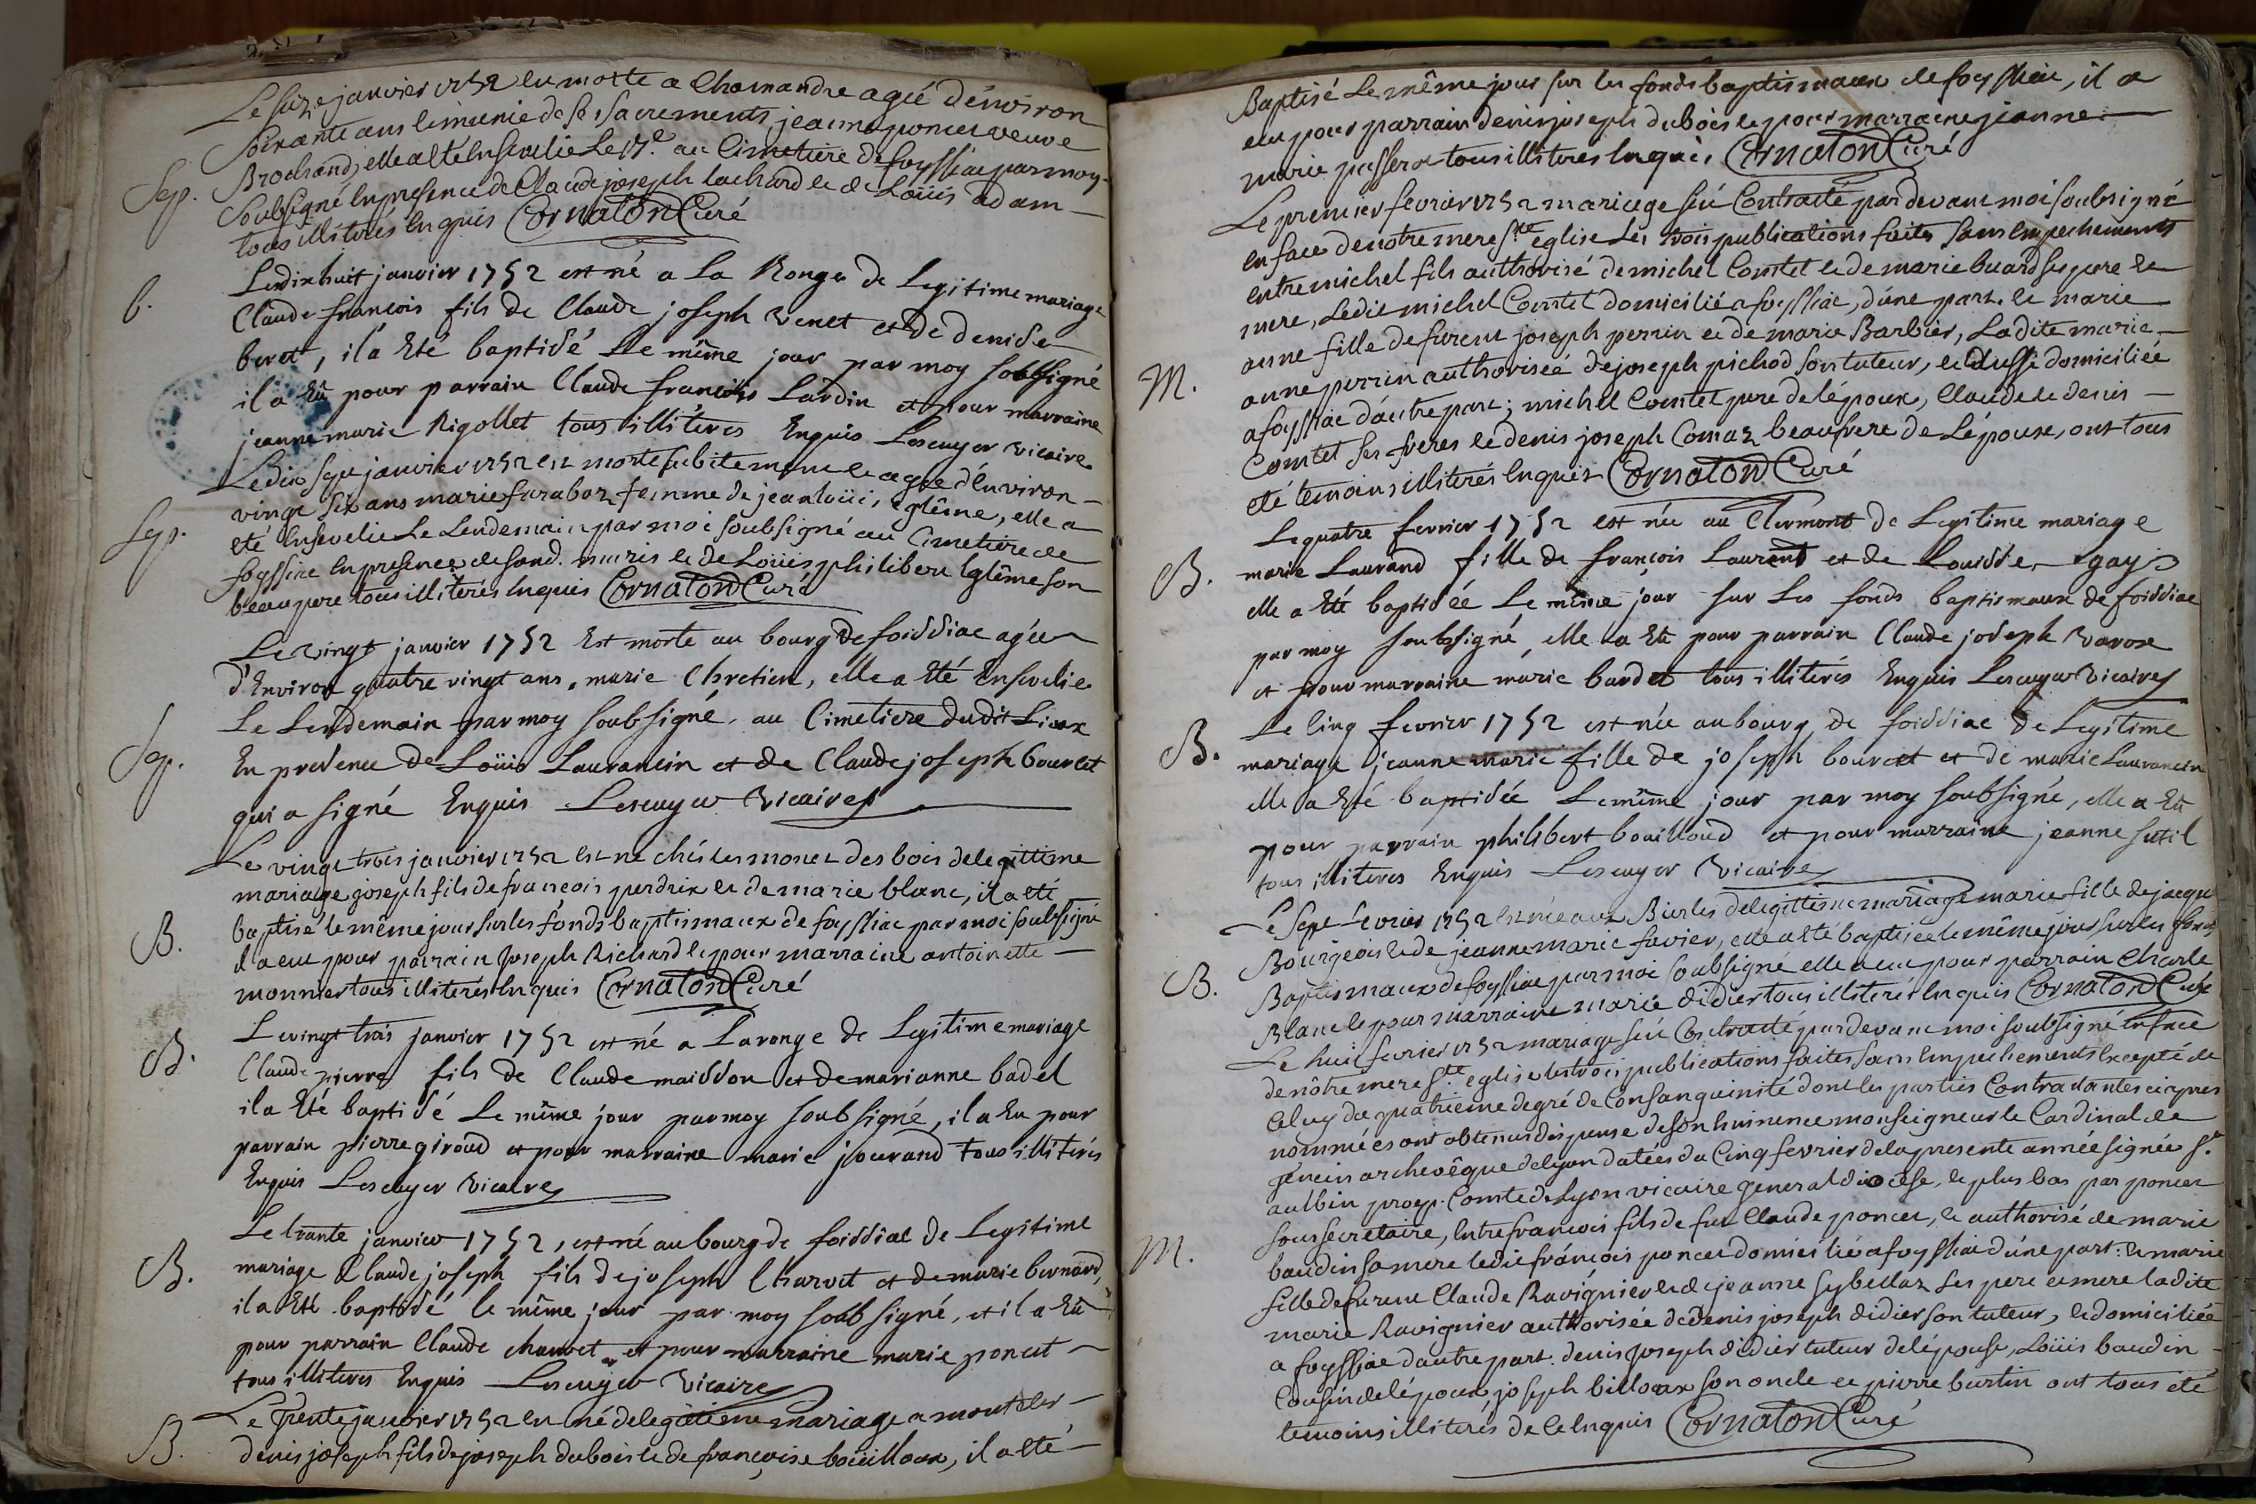 Le seize janvier 1752 est morte a Chamandre agée d'environ
soixante ans et munie de ses sacrements jeanne poncet veuve
Brochand, elle a eté Ensevelie Le 17.e au Cimetiere de foyssiac par moy
Sep. Soubsigné En presence de Claude joseph Lachard et de Loüis adam
tous illiterés Enquis Cornaton Curé
b. Le dix huit janvier 1752 est né a La Ronge de Legitime mariage
Claude francois fils de Claude joseph venet et de denise
beret, il a Eté baptisé Le même jour par moy soubsigné
il a Eû pour parrain Claude francois Lardin et pour marraine
jeanne marie Rigollet tous illiteres Enquis Lescuyer vicaire
Le dix sept janvier 1752 est morte subitement et agée d'Environ
vingt six ans marie faraboz femme de jean loüis eglême, elle a
Sep. eté Ensevelie Le Lendemain par moi soubsigné au Cimetiere de
foyssiac En presence de sond. maris et de Loüis philibert Eglême son
beaupere tous illiterés Enquis Cornaton Curé
Le vingt janvier 1752 Est morte au bourg de foissiac agée
d'Environ quatre vingt ans, marie Chretien, elle a Eté Ensevelie
Le Lendemain par moy soubsigné, au Cimetiere dudit Lieux
Sep. En presence de Loüis Laurancin et de Claude joseph bourcet
qui a signé Enquis Lescuyer vicaire
Le vingt trois janvier 1752 est né chés les monet des bois de legittime
mariage joseph fils de francois perdrix et de marie blanc, il a eté
B. baptisé le même jour sur les fonds baptismaux de foyssiac par moi soubsigné
il a eu pour parrain joseph Richard et pour marraine antoinette
monnier tous illiterés Enquis Cornaton Curé
B. Le vingt trois janvier 1752 est né a La ronge de Legitime mariage
Claude pierre fils de Claude maisson et de marianne badel
il a Eté baptisé Le même jour par moy soubsigné, il a Eu pour
parrain pierre giroud et pour marraine marie jourand tous illiterés
Enquis Lescuyer vicaire
Le trante janvier 1752, est né au bourg de foissiac de Legitime
B. mariage Claude joseph fils de joseph Charvet et de marie bernard,
il a Eté baptisé le même jour par moy soubsigné, et il a Eû
pour parrain Claude charvet et pour marraine marie poncet
tous illiteres Enquis Lescuyer vicaire
Le Trente janvier 1752 est né de legitieme mariage a montcler
B. denis joseph fils de joseph dubois et de françoise boüilloux, il a eté
Baptisé Le même jour sur les fonds baptismaux de foyssiac, il a
eu pour parrain denis joseph dubois et pour marraine jeanne
marie passerat tous illiterés Enquis, Cornaton Curé
Le premier fevrier 1752 mariage feü Contracté pardevant moi soubsigné
en face de notre mere Ste eglise Les trois publications faites sans Empechements
entre michel fils authorisé de michel Comtet et de marie buard ses pere et
mere, Ledit michel Comtet domicilié a foyssiac, d'une part. et marie
anne fille de furent joseph perrin et de marie Barbier, Ladite marie
M. anne perrin authorisée de joseph pichod son tuteur, et aussi domiciliée
a foyssiac d'autre part; michel Comtet pere de lépoux, Claude et denis
Comtet ses freres et denis joseph Comaz beaufrere de Lépouse, ont tous
eté temoins illiterés Enquis Cornaton Curé
Le quatre fevrier 1752 est née au Clermont de Legitime mariage
B. marie Laurand fille de françois Laurent et de Louisse gay
elle a Eté baptisée Le même jour sur Les fonds baptismaux de foissiac
par moy soubsigné, elle a Eû pour parrain Claude joseph varox
et pour marraine marie bardet tous illiterés Enquis Lescuyer vicaire
Le Cinq fevrier 1752 est née au bourg de foissiac de Legitime
B. mariage jeanne marie fille de joseph bourcet et de marie Laurancin
elle a Eté baptisée Le même jour par moy soubsigné, elle a Eû
pour parrain philibert bouilloud et pour marraine jeanne sutil
tous illiteres Enquis Lescuyer vicaire
Le sept fevrier 1752 est née aux Bierles de legittime mariage marie fille de jacque
Bourgeois et de jeanne marie favier, elle a eté baptisée le même jour sur les fonds
B. Baptismaux de foyssiac par moi soubsigné elle a eu pour parrain Charle
Blanc et pour marraine marie didier tous illiterés Enquis Cornaton Curé
Le huit fevrier 1752 mariage feü Contracté pardevant moi soubsigné en face
de nôtre mere Ste eglise les trois publications faites sans Empechements Excepté de
Celuy du quatrieme degré de Consanguinité dont les parties Contractantes cy apres
nommées ont obtenus dispense de son Eminence monseigneur le Cardinal de
tencin archevêque de lyon datées du Cinq fevrier de la presente année signée St
aulbin Comte de Lyon vicaire general diocèse, et plus bas par poncet
sous secretaire, Entre francois fils de fut Claude poncet, et authorisé de marie
M. baudin sa mere ledit francois poncet domicilié a foyssiac d'une part: et marie
fille de furent Claude Ravignier et de jeanne sybellaz ses pere et mere ladite
marie Ravignier authorisée de denis joseph didier son tuteur, et domiciliée
a foyssiac d'autre part. denis joseph didier tuteur de lépouse, Loüis baudin
Cousin de lépoux, joseph billoux son oncle et pierre burtin ont tous eté
temoins illiterés de ce Enquis Cornaton Curé